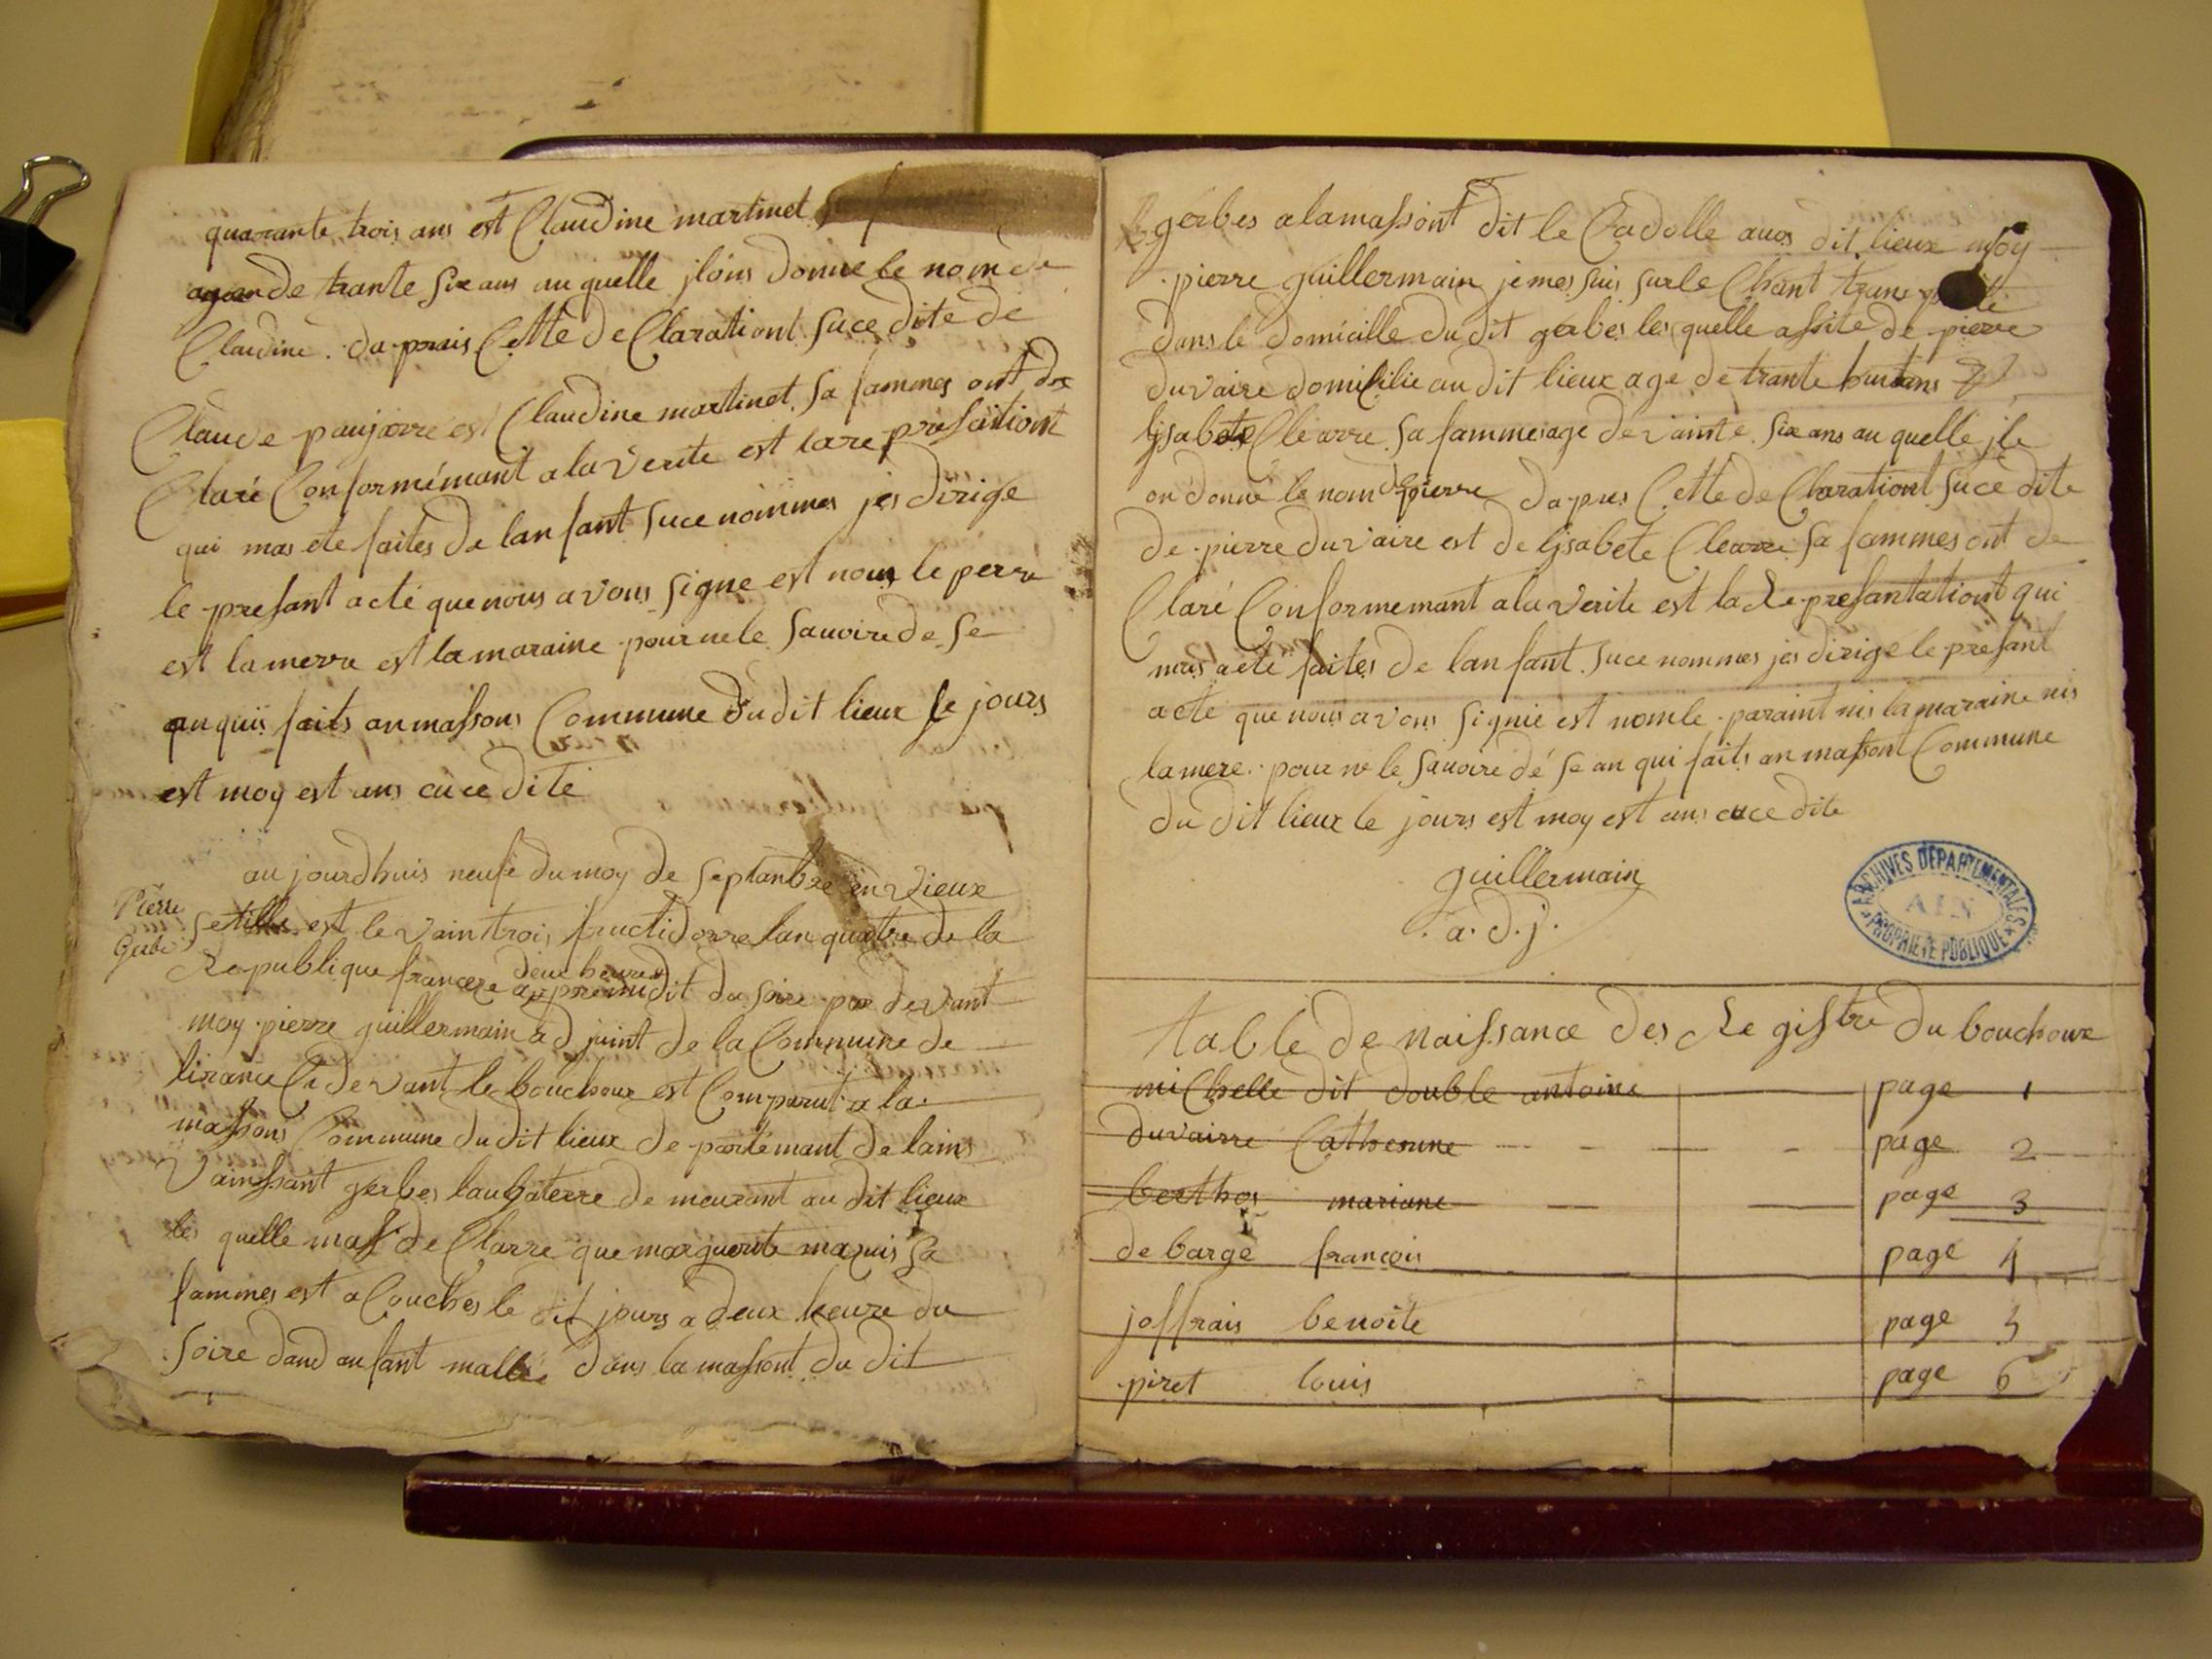 quarante trois ans est Claudine martinet
agee de trante six ans au quelle jlons donne le nom de
Claudine. da prais Cette de Clarationt suce dite de
Claude paujarre est Claudine martinet sa fammes ont de
Claré Conformémant a la verite est la representationt
qui mas ete faites de lanfant suce nommes jes dirige
le presant acté que nous avons signe est nom le perre
est la merre est la maraine pour ne le sauoire de se
an qui faits an massons Commune du dit lieux le jours
est moy est ans cuce dite
au jourdhuis neufe du moy de septanbre en vieux
Pierre
Gerbe
setille est le vaintrois fructidorre lan quatre de la
Republique francese
deux heures
apremidit du soire par devant
moy pierre guillermain ad joint de la Commune de
lirance Cidevant le bouchoux est Comparut a la
massons Commune du dit lieux de partémant de lains
Vainssant gerbes laubaterre de meurant au dit lieux
les quelle mas de Clarre que marguerite manis sa
fammes est a Couches le dit jours a deux heure du
soire dand anfant malle dans la massont du dit
gerbes a la massont dit le Cadolle aus dit lieux moy
pierre guillermain je mes suis sur le Chant trans porté
dans le domicille du dit gerbes les quelle assite de pierre
duvaire domicilie au dit lieux age de trante huit ans
Ejsabete Clearre sa famme age de vainte six ans au quelle jls
on donné le nom de pierre da pres Cette de Clarationt suce dite
de pierre duvaire est de Ejsabete Clearre sa fammes ont de
Claré Conformemant a la verite est la Representationt qui
mas aété faites de lanfant suce nommes jes dirige le presant
acte que nous avons signie est nom le paraint nis la maraine nis
la mere pour ne le sauoire dé se an qui faits an massont Commune
du dit lieux le jours est moy est ans cuce dite
guillermain
a. d. j.
ARCHIVES DÉPARTEMENTALES
AIN
PROPRIÉTÉ PUBLIQUE
table de naissance des Registre du bouchoux
miChelle dit double antoine page 1
duvairre Catherinne page 2
berthos mariane page 3
de barge françois page 4
joffrais benoite page 5
piret louis page 6